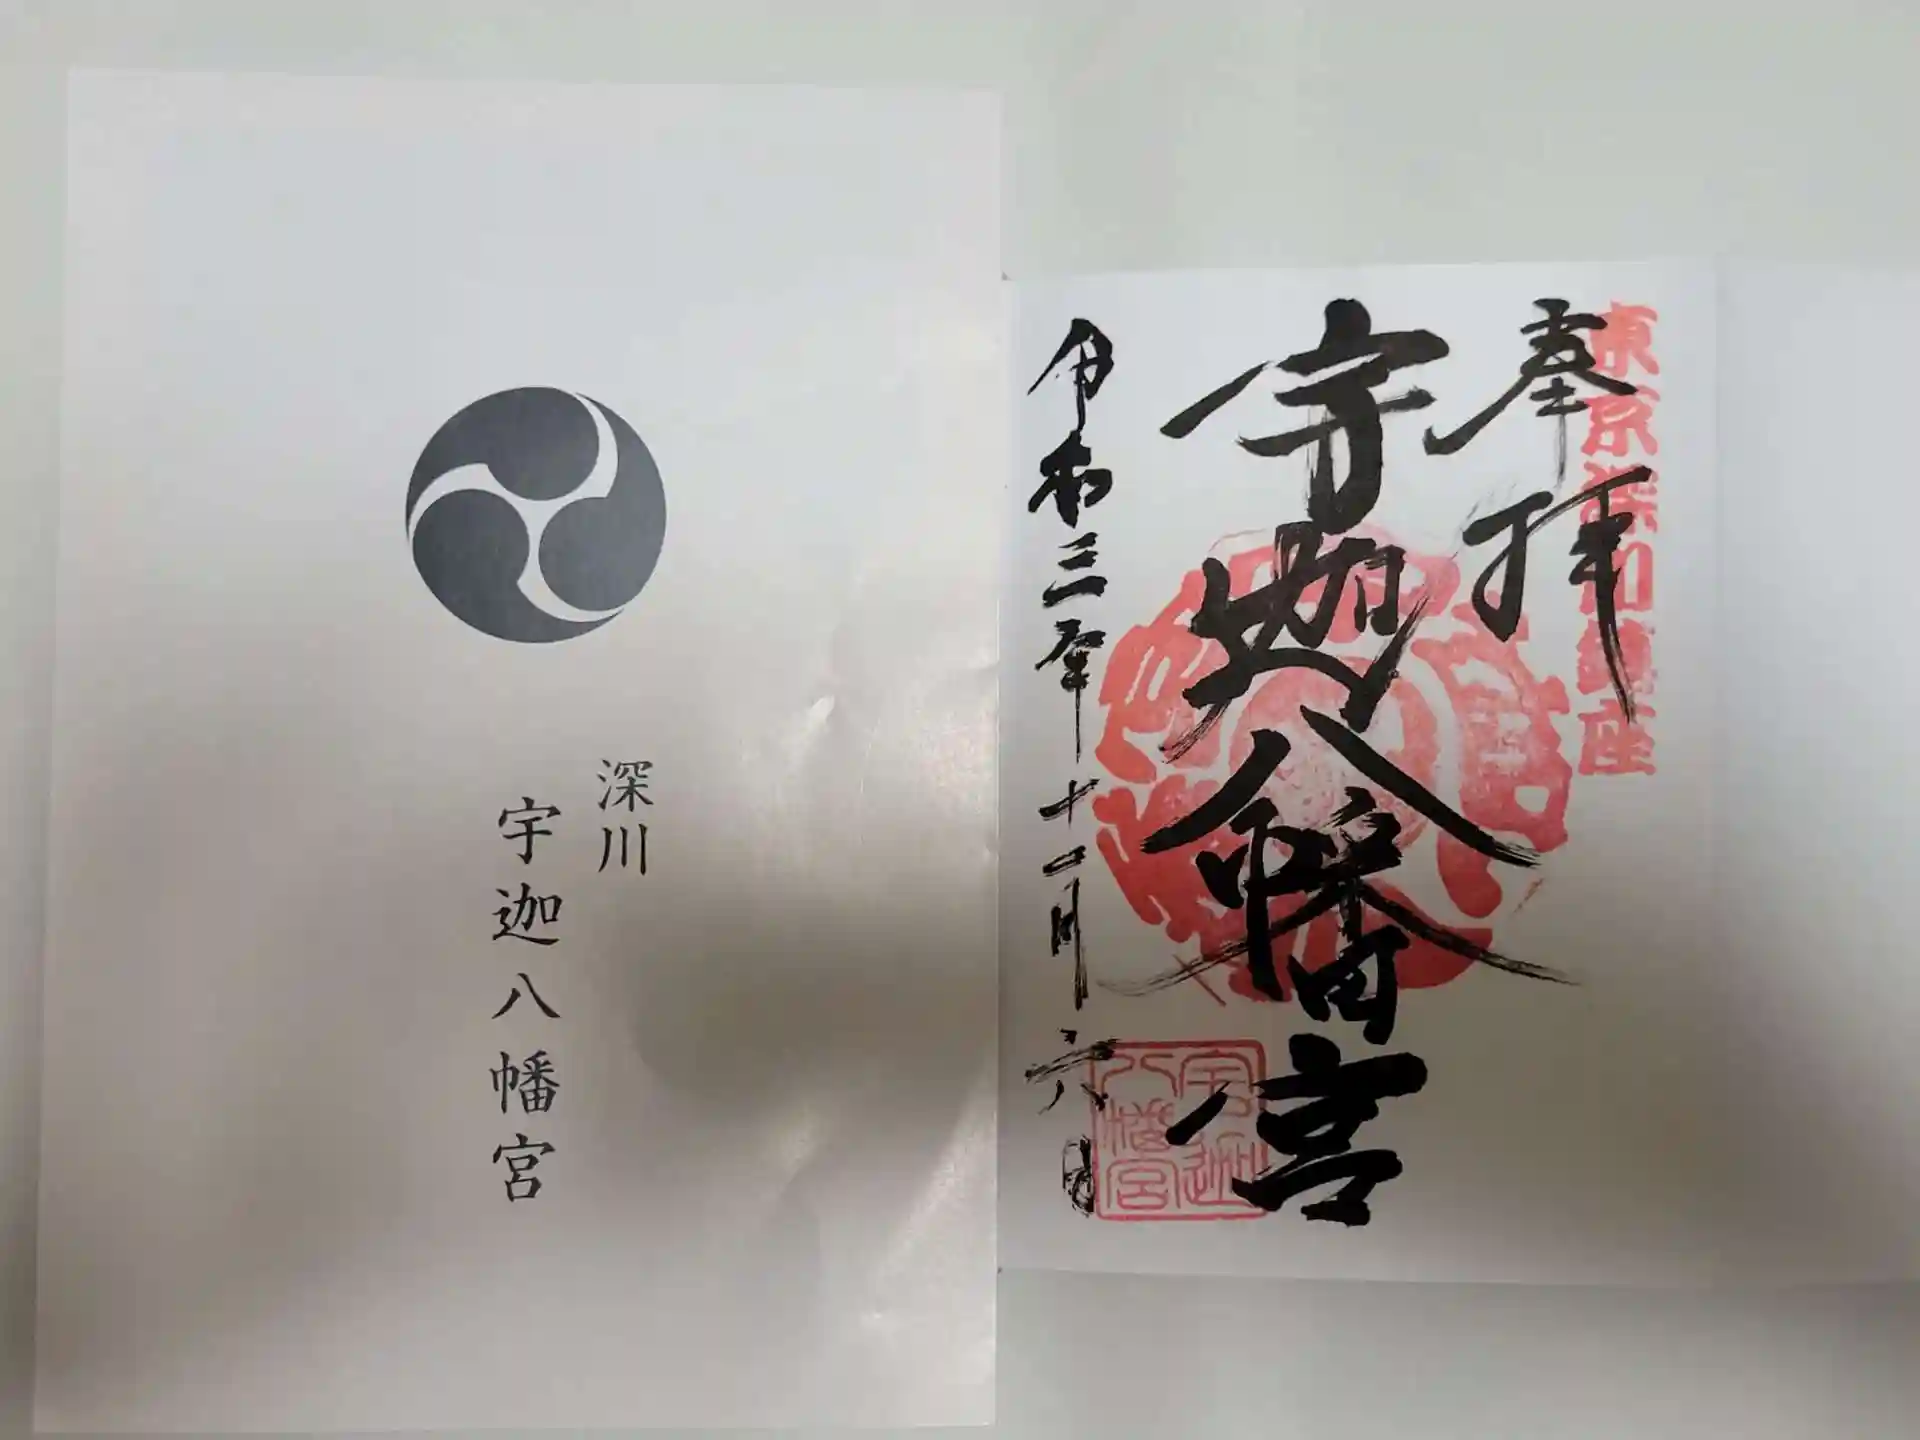 深川
宇迦八幡宮
東京深川鎮座
奉拝
宇迦八幡宮
令和三年十一月六日
宇迦
八幡宮